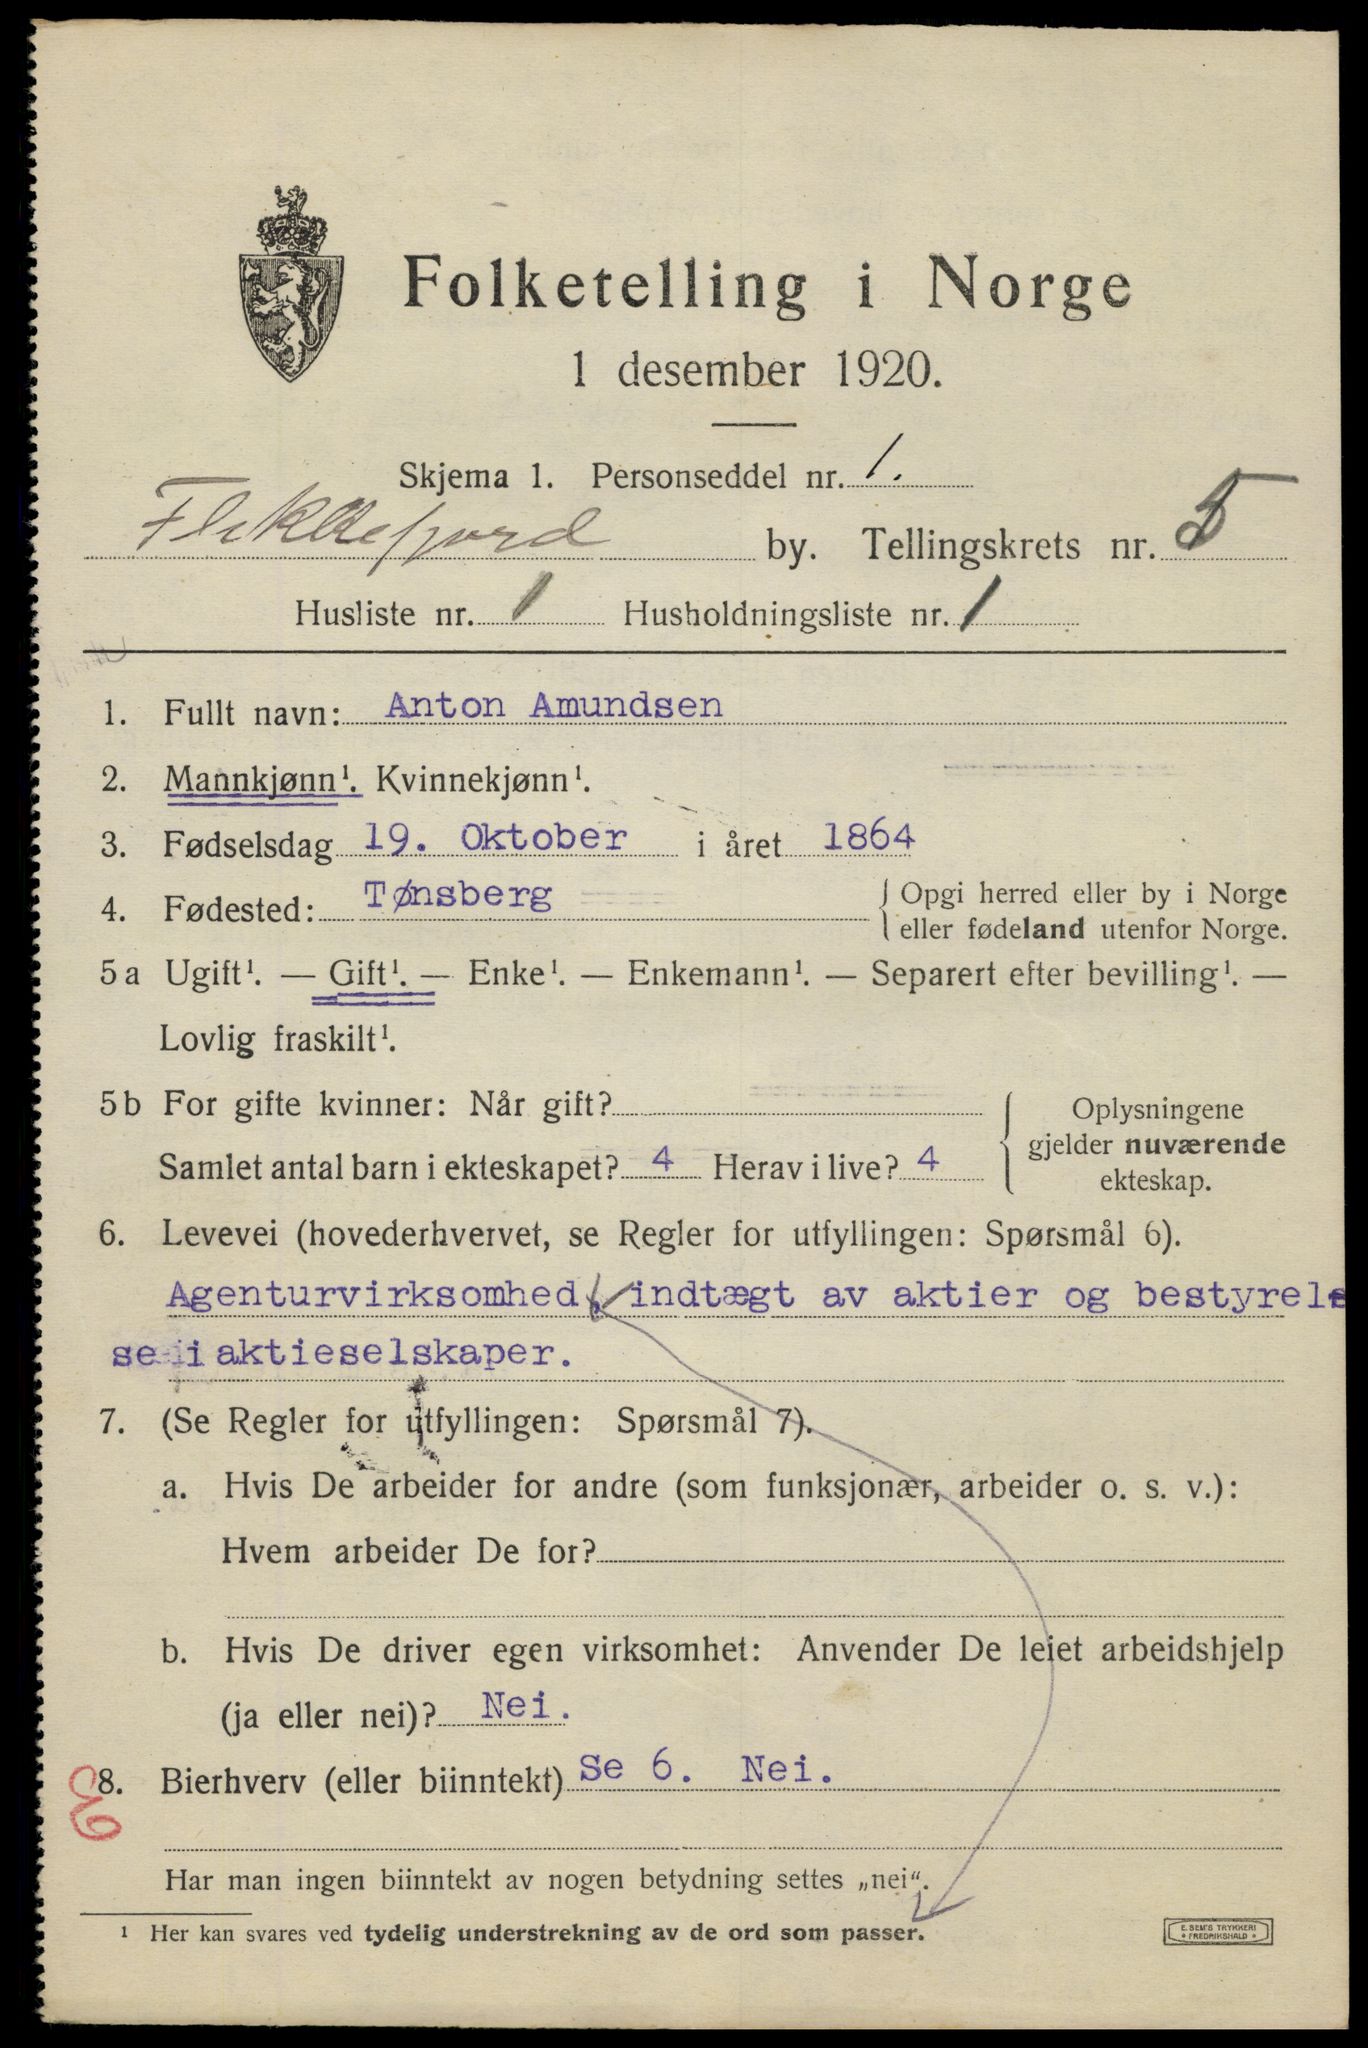 Folketelling i Norge
1 desember 1920.
Skjema 1. Personseddel nr. 1.
Flekkefjord by. Tellingskrets nr. 5
Husliste nr. 1 Husholdningsliste nr. 1
1. Fullt navn: Anton Amundsen
2. Mannkjønn¹. Kvinnekjønn¹.
3. Fødselsdag 19. Oktober i året 1864
4. Fødested: Tønsberg { Opgi herred eller by i Norge
eller fødeland utenfor Norge.
5a Ugift¹. — Gift¹. — Enke¹. — Enkemann¹. — Separert efter bevilling¹. —
Lovlig fraskilt¹.
5b For gifte kvinner: Når gift?
Samlet antal barn i ekteskapet? 4 Herav i live? 4
{ Oplysningene
gjelder nuværende
ekteskap.
6. Levevei (hovederhvervet, se Regler for utfyllingen: Spørsmål 6).
Agenturvirksomhed, indtægt av aktier og bestyrel
se i aktieselskaper.
7. (Se Regler for utfyllingen: Spørsmål 7).
a. Hvis De arbeider for andre (som funksjonær, arbeider o. s. v.):
Hvem arbeider De for?
b. Hvis De driver egen virksomhet: Anvender De leiet arbeidshjelp
(ja eller nei)? Nei.
8. Bierhverv (eller biinntekt) Se 6. Nei.
Har man ingen biinntekt av nogen betydning settes „nei“.
¹ Her kan svares ved tydelig understrekning av de ord som passer.
E. SEM'S TRYKKERI
FREDRIKSHALD